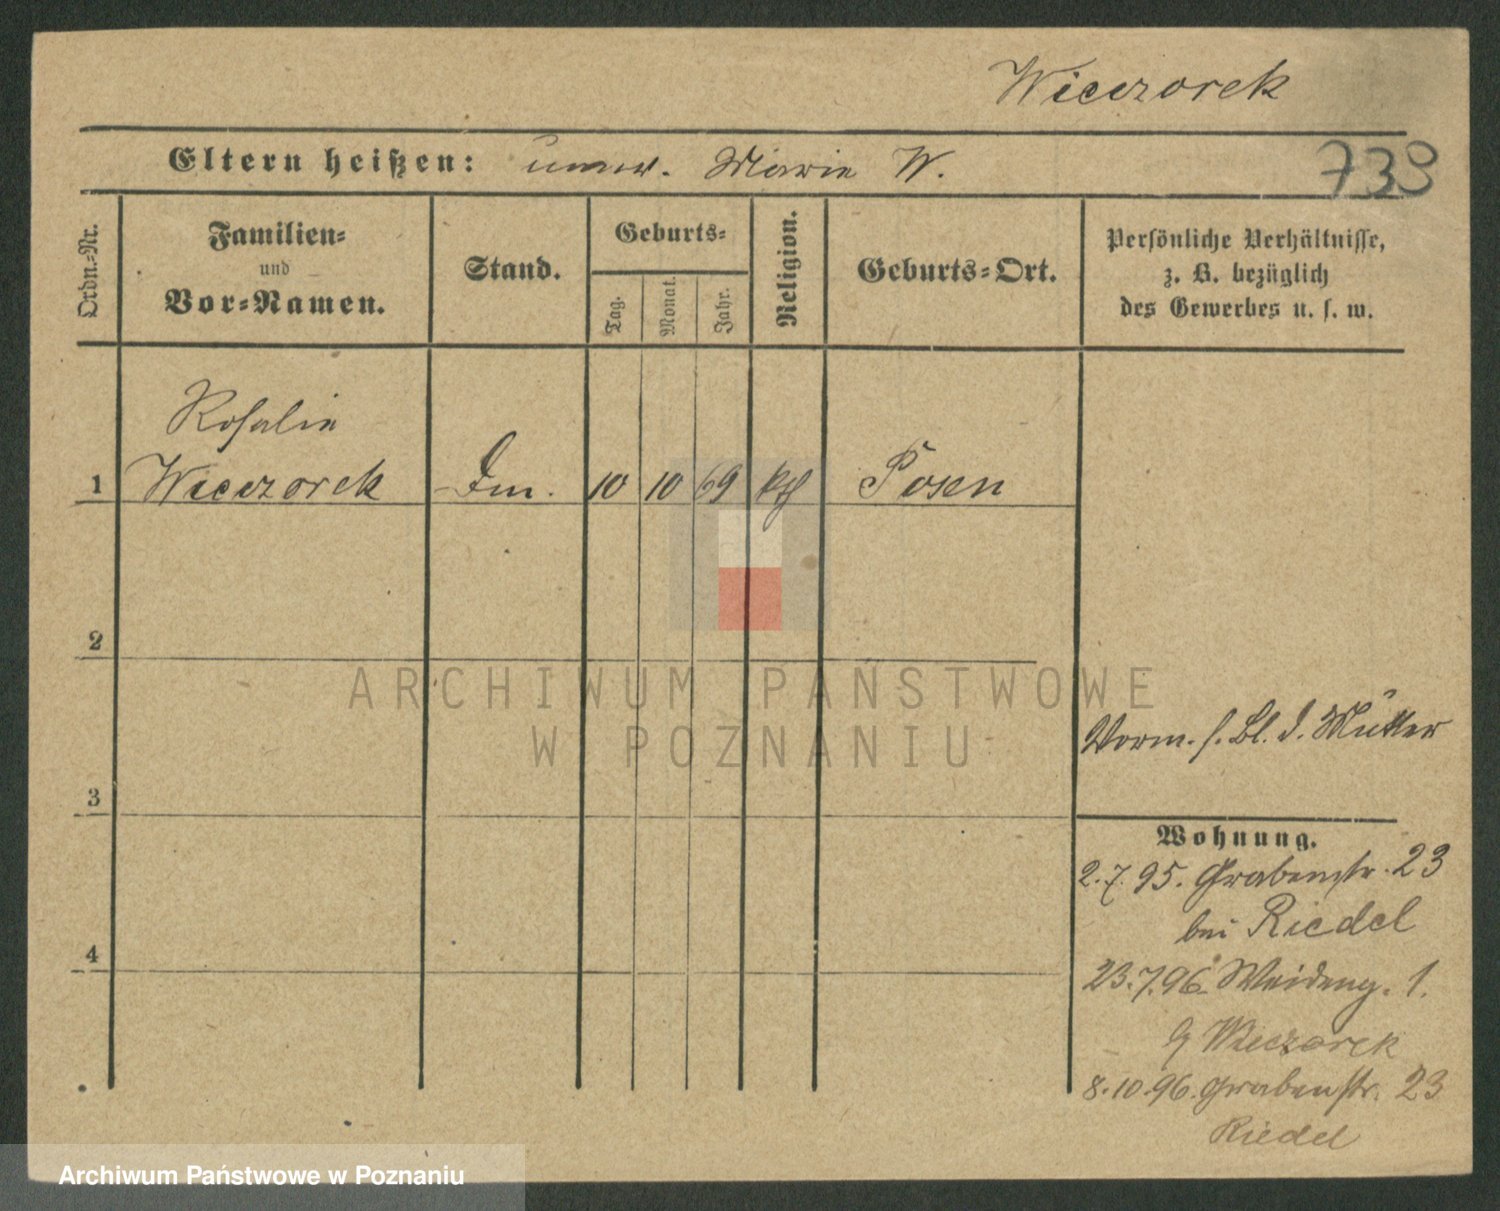 Wieczorek
Eltern heißen: unver. Marie W.
733
Ordn.-Nr.
Familien-
und
Vor-Namen.
Stand.
Geburts-
Tag.
Monat.
Jahr.
Religion.
Geburts-Ort.
Persönliche Verhältnisse,
z. B. bezüglich
des Gewerbes u. s. w.
Rosalie
1 Wieczorek Dm. 10 10 69 kth Posen
2
3
4
Vorm. s. Bl. d. Mutter
Wohnung.
2.7.95. Grabenstr. 23
bei Riedel
23.7.96. Weideng. 1.
Wieczorek
8.10.96. Grabenstr. 23
Riedel
ARCHIWUM PAŃSTWOWE
W POZNANIU
Archiwum Państwowe w Poznaniu